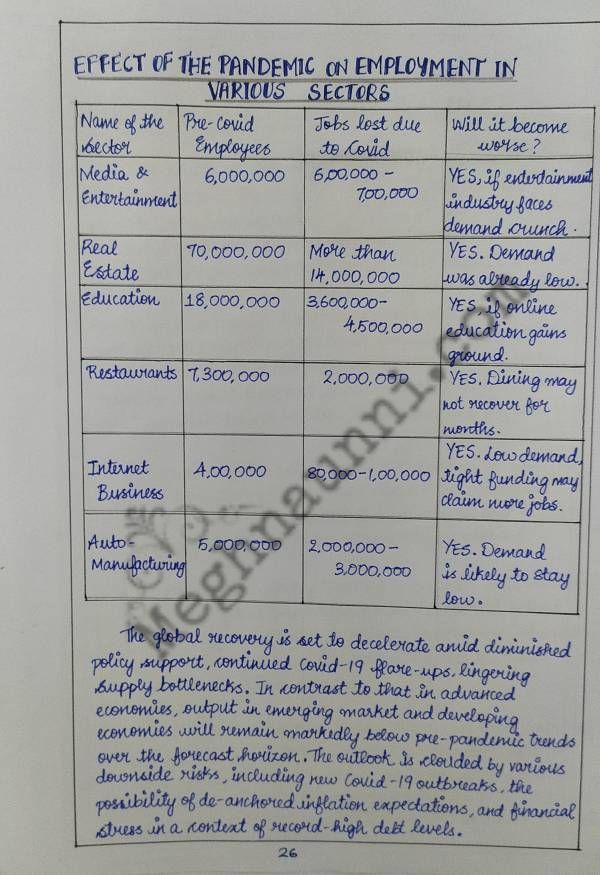 EFFECT OF THE PANDEMIC ON EMPLOYMENT IN
VARIOUS SECTORS
Name of the Sector | Pre-covid Employees | Jobs lost due to Covid | Will it become worse?
Media & Entertainment | 6,000,000 | 6,00,000 - 7,00,000 | YES, if entertainment industry faces demand crunch.
Real Estate | 70,000,000 | More than 14,000,000 | YES. Demand was already low.
Education | 18,000,000 | 3,600,000 - 4,500,000 | YES, if online education gains ground.
Restaurants | 7,300,000 | 2,000,000 | YES. Dining may not recover for months.
Internet Business | 4,00,000 | 80,000 - 1,00,000 | YES. Low demand, tight funding may claim more jobs.
Auto-Manufacturing | 5,000,000 | 2,000,000 - 3,000,000 | YES. Demand is likely to stay low.
The global recovery is set to decelerate amid diminished
policy support, continued covid-19 flare-ups, lingering
supply bottlenecks. In contrast to that in advanced
economies, output in emerging market and developing
economies will remain markedly below pre-pandemic trends
over the forecast horizon. The outlook is clouded by various
downside risks, including new Covid-19 outbreaks, the
possibility of de-anchored inflation expectations, and financial
stress in a context of record-high debt levels.
26
Meghnaunni.com